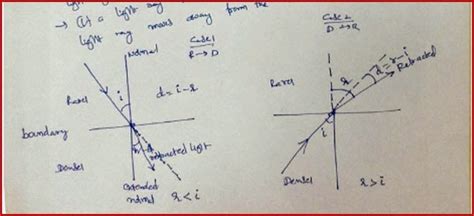 → (2) a light ray
light ray moves away from the
Normal
Case 1
R → D
Rarer
i
d = i - r
boundary
Denser
refracted light
extended
normal
r < i
Case 2
D → R
r
d = r - i
Refracted
Rarer
i
Denser
r > i